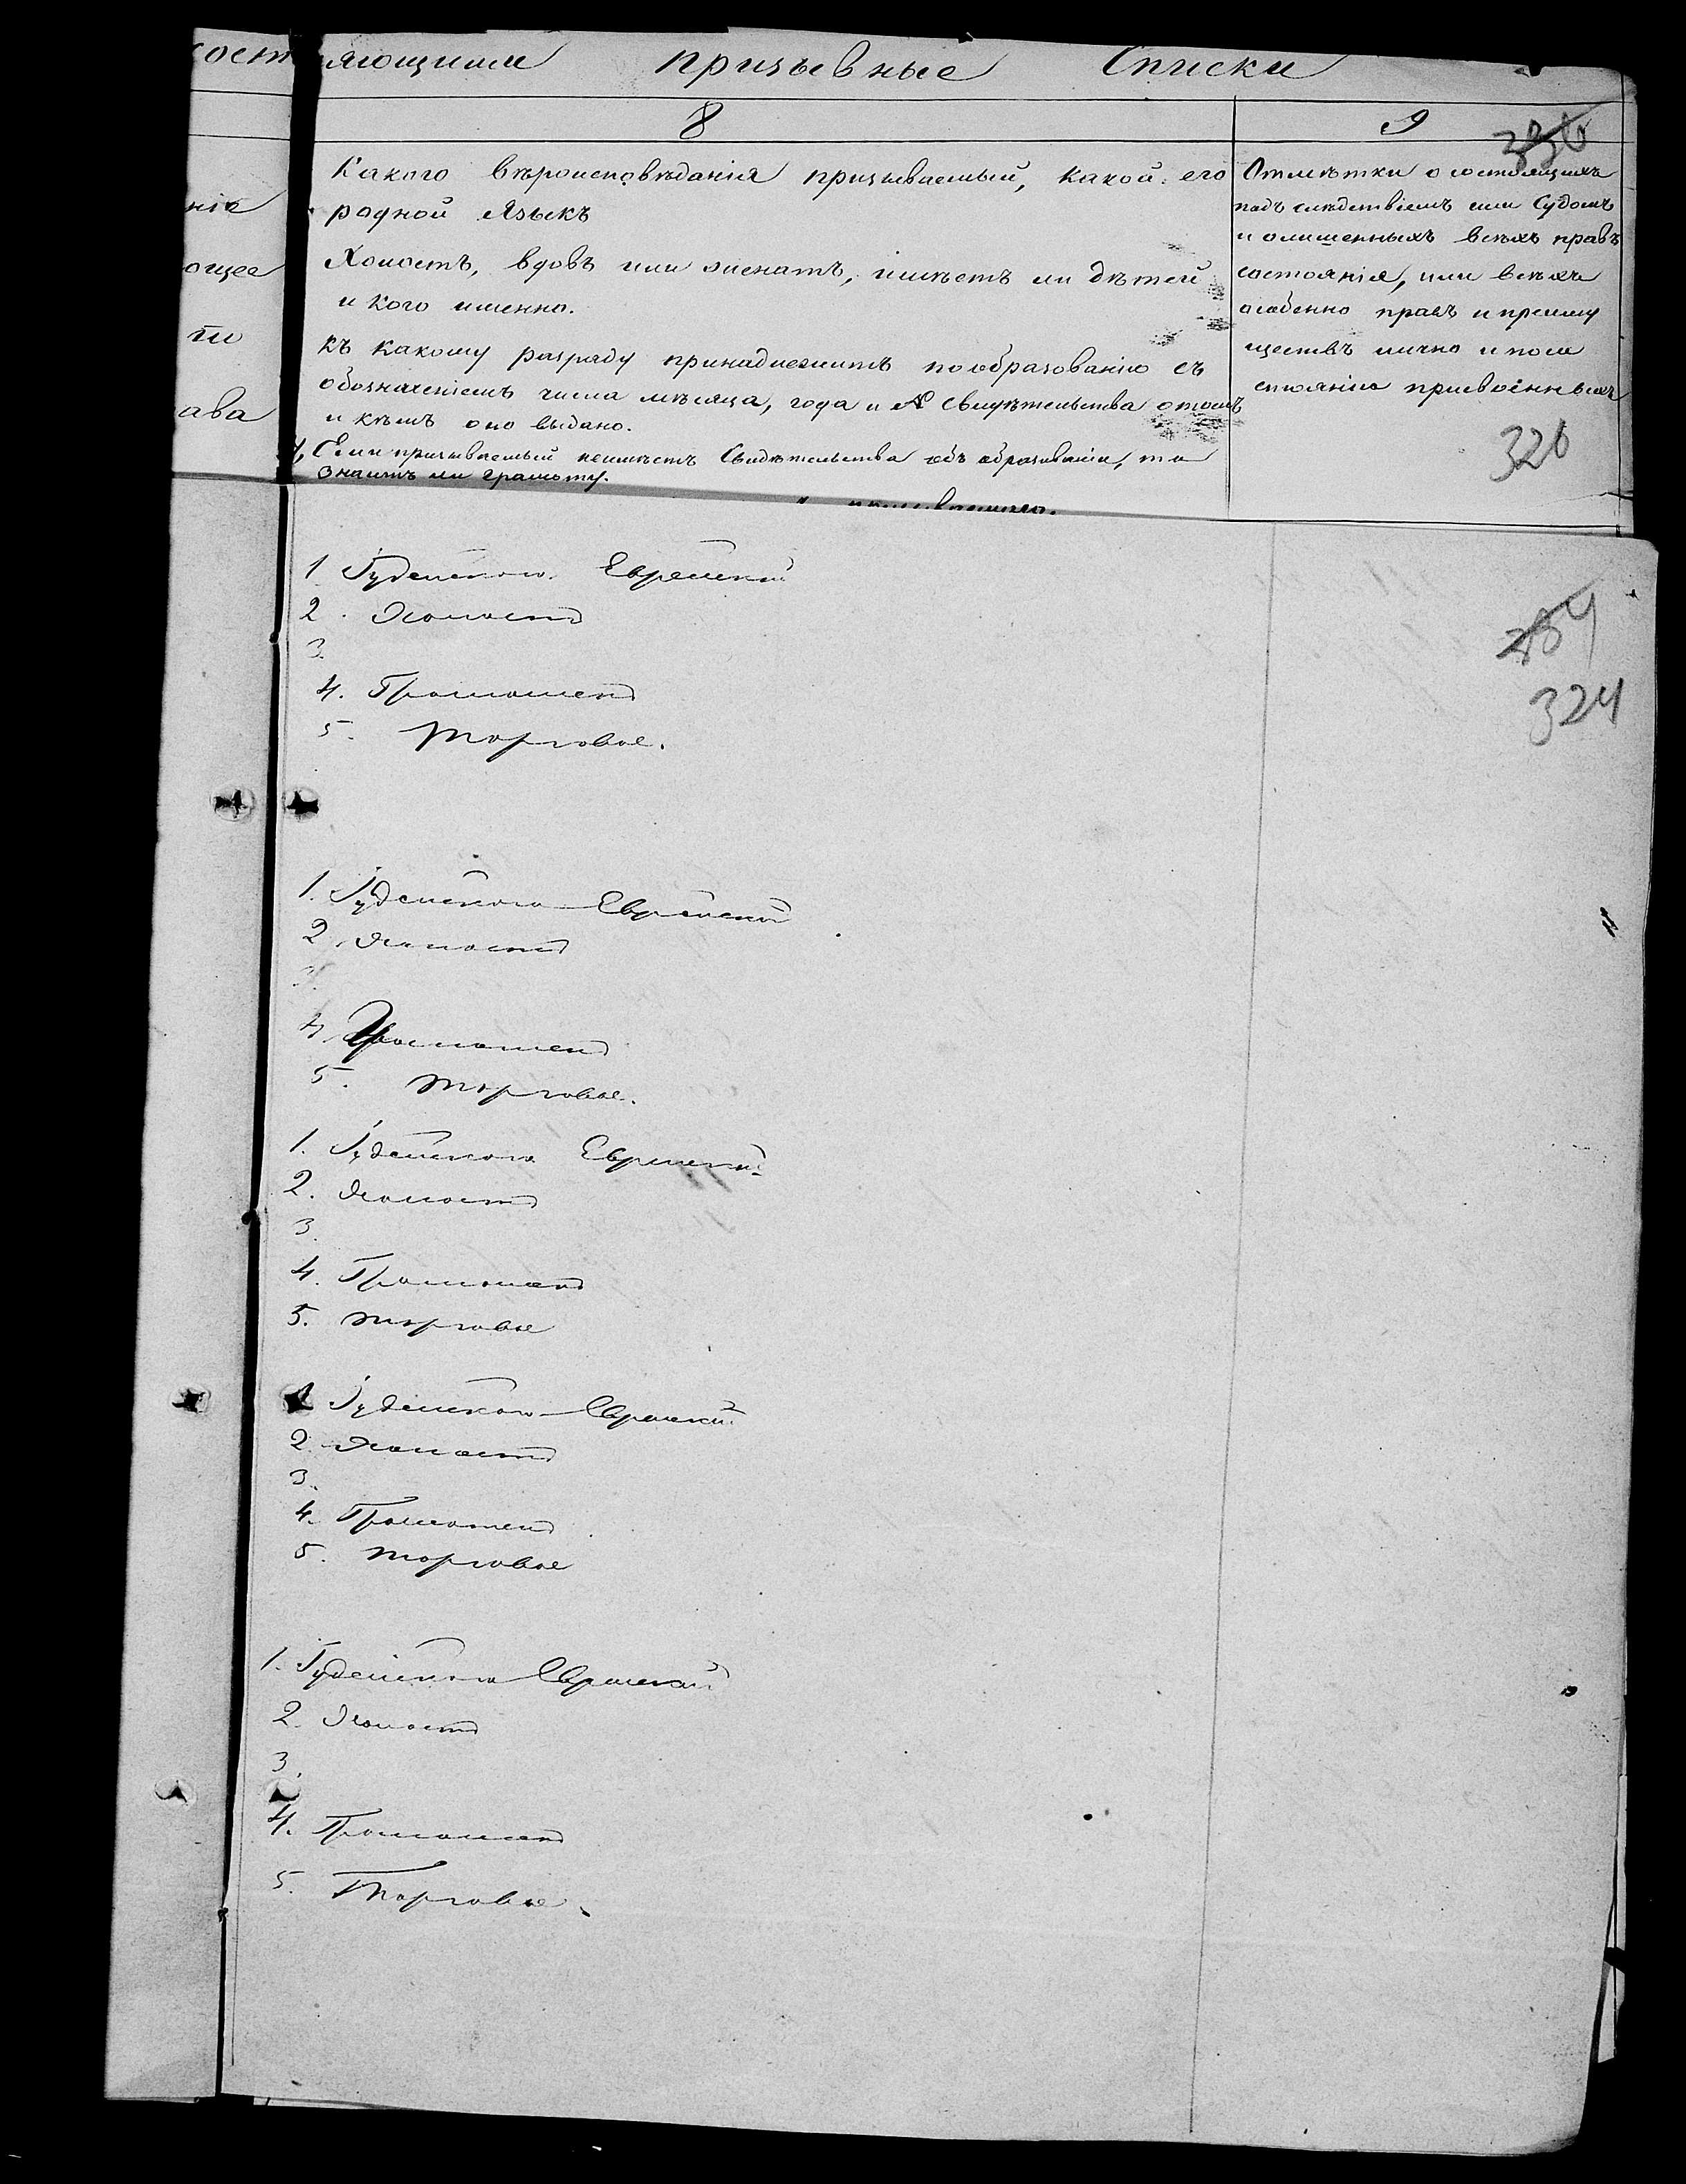 яющими призывные Списки
8
9
330
Какого вѣроисповѣданія призываемый, какой его
родной Языкъ
Холостъ, вдовъ или женатъ, имѣетъ ли дѣтей
и кого именно.
къ какому разряду принадлежитъ по образованію съ
обозначеніемъ числа мѣсяца, года и № Свидѣтельства о томъ
и кѣмъ оно выдано.
4, Если призываемый неимѣетъ Свидѣтельства объ образованіи, то
знаетъ ли грамоту.
призываемаго.
Отмѣтки о состоящихъ
подъ слѣдствіемъ или Судомъ
и о лишенныхъ всѣхъ правъ
состоянія, или всѣхъ
особенно правъ и преиму
ществъ лично и по со
стоянію присвоенныхъ
326
нія
ющее
ти
ава
284
324
1 Іудейскаго Еврейскій
2. Холостъ
3.
4. Грамотенъ
5. Торговое.
1. Іудейскаго Еврейскій
2. Холостъ
3.
4. Грамотенъ
5. Торговое.
1. Іудейскаго Еврейскій
2. Холостъ
3.
4. Грамотенъ
5. Торговое
1 Іудейскаго Еврейскій
2. Холостъ
3.
4. Грамотенъ
5. Торговое
1. Іудейскаго Еврейскій
2. Холостъ
3.
4. Грамотенъ
5. Торговое.